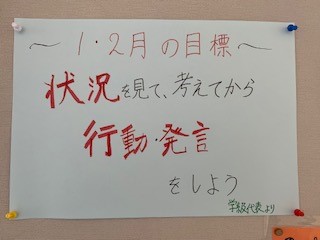 ～1・2月の目標～
状況を見て、考えてから
行動・発言
をしよう
学級代表より